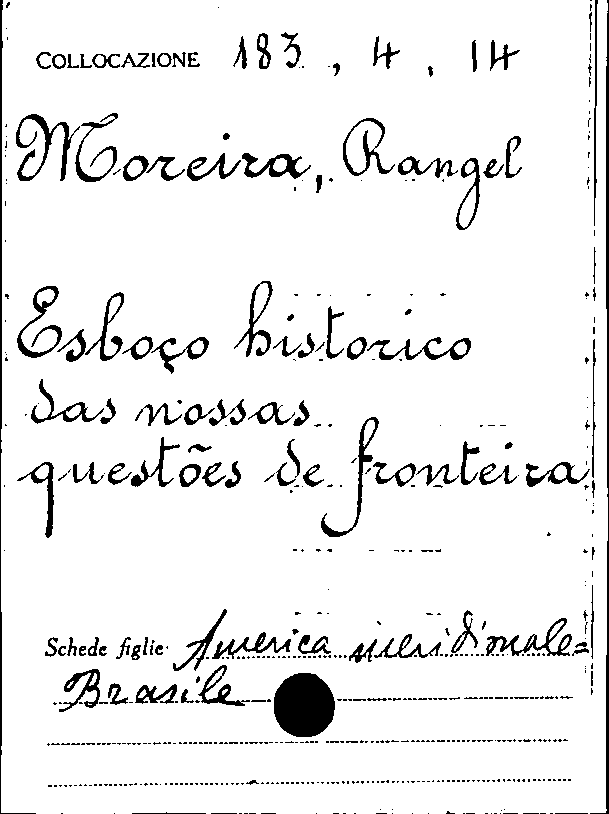 COLLOCAZIONE 183, 4, 14
Moreira, Rangel
Esboço historico
das nossas
questões de fronteira
Schede figlie America meridionale=
Brasile